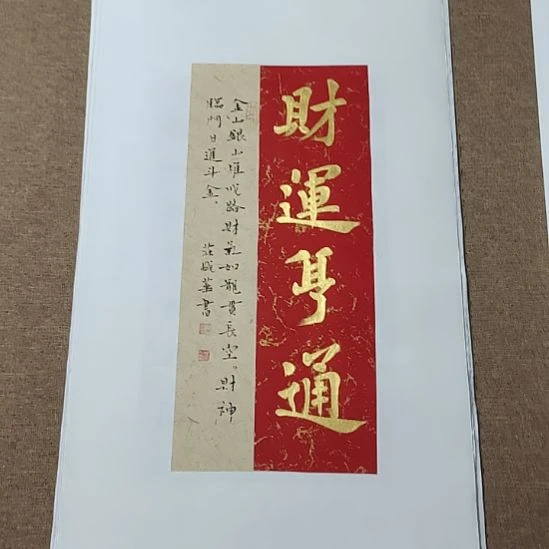 財運亨通
金山銀山堆成路財氣如龍貫長空。財神
臨門日進斗金。
莊盛華書